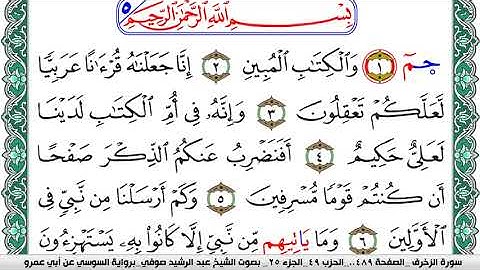 بِسْمِ اللَّهِ الرَّحْمَٰنِ الرَّحِيمِ ٥
حمٓ ١ وَالْكِتَٰبِ الْمُبِينِ ٢ إِنَّا جَعَلْنَٰهُ قُرْءَٰنًا عَرَبِيًّا
لَعَلَّكُمْ تَعْقِلُونَ ٣ وَإِنَّهُۥ فِىٓ أُمِّ الْكِتَٰبِ لَدَيْنَا
لَعَلِىٌّ حَكِيمٌ ٤ أَفَنَضْرِبُ عَنكُمُ الذِّكْرَ صَفْحًا
أَن كُنتُمْ قَوْمًا مُّسْرِفِينَ ٥ وَكَمْ أَرْسَلْنَا مِن نَّبِىٍّ فِى
الْأَوَّلِينَ ٦ وَمَا يَاتِيهِم مِّن نَّبِىٍّ إِلَّا كَانُوا۟ بِهِۦ يَسْتَهْزِءُونَ
سورة الزخرف ..الصفحة ٤٨٩..الحزب ٤٩..الجزء ٢٥ ..بصوت الشيخ عبد الرشيد صوفي..برواية السوسي عن أبي عمرو